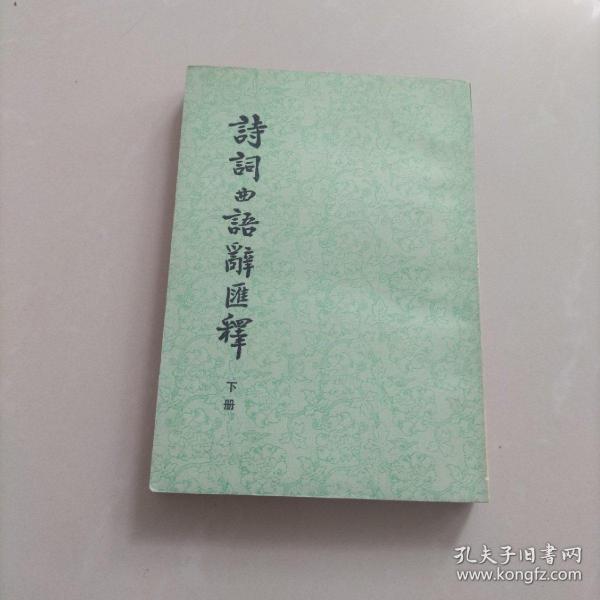 詩詞曲語辭匯釋
下册
孔夫子旧书网
www.kongfz.com